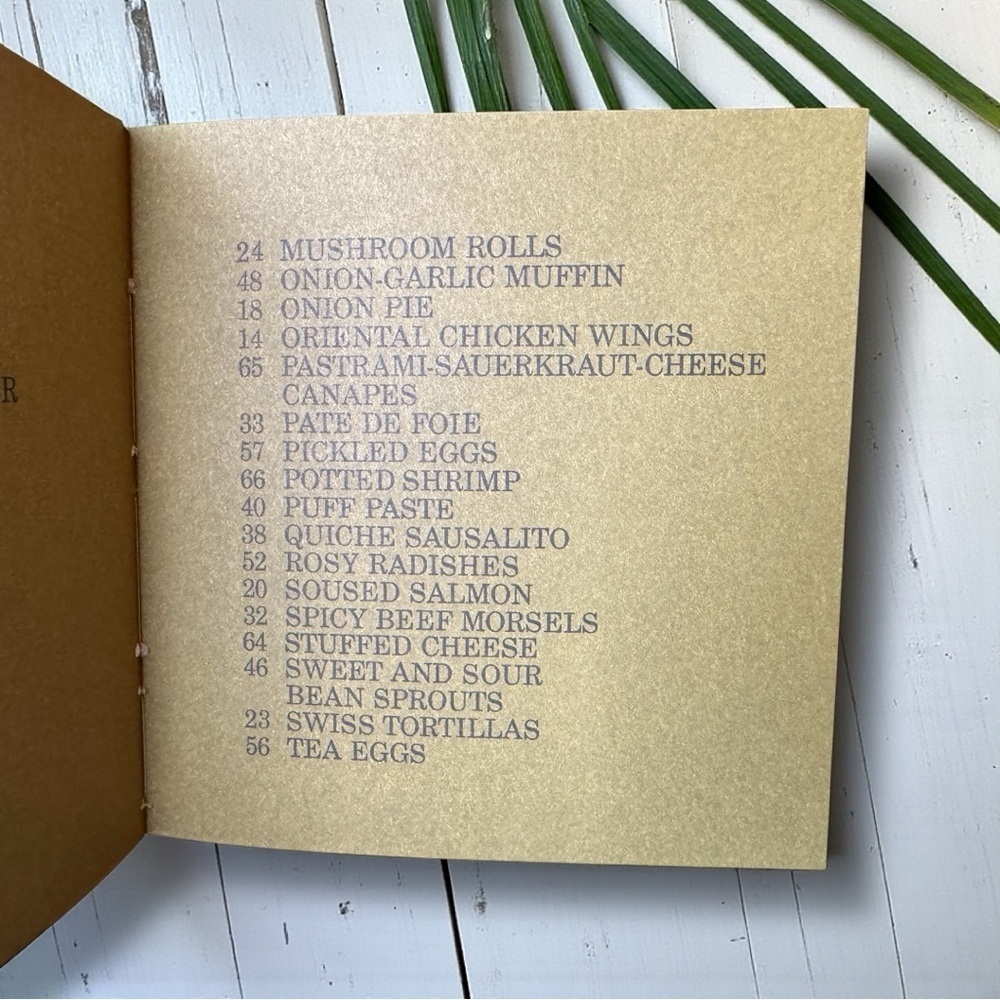 R
24 MUSHROOM ROLLS
48 ONION-GARLIC MUFFIN
18 ONION PIE
14 ORIENTAL CHICKEN WINGS
65 PASTRAMI-SAUERKRAUT-CHEESE
CANAPES
33 PATE DE FOIE
57 PICKLED EGGS
66 POTTED SHRIMP
40 PUFF PASTE
38 QUICHE SAUSALITO
52 ROSY RADISHES
20 SOUSED SALMON
32 SPICY BEEF MORSELS
64 STUFFED CHEESE
46 SWEET AND SOUR
BEAN SPROUTS
23 SWISS TORTILLAS
56 TEA EGGS